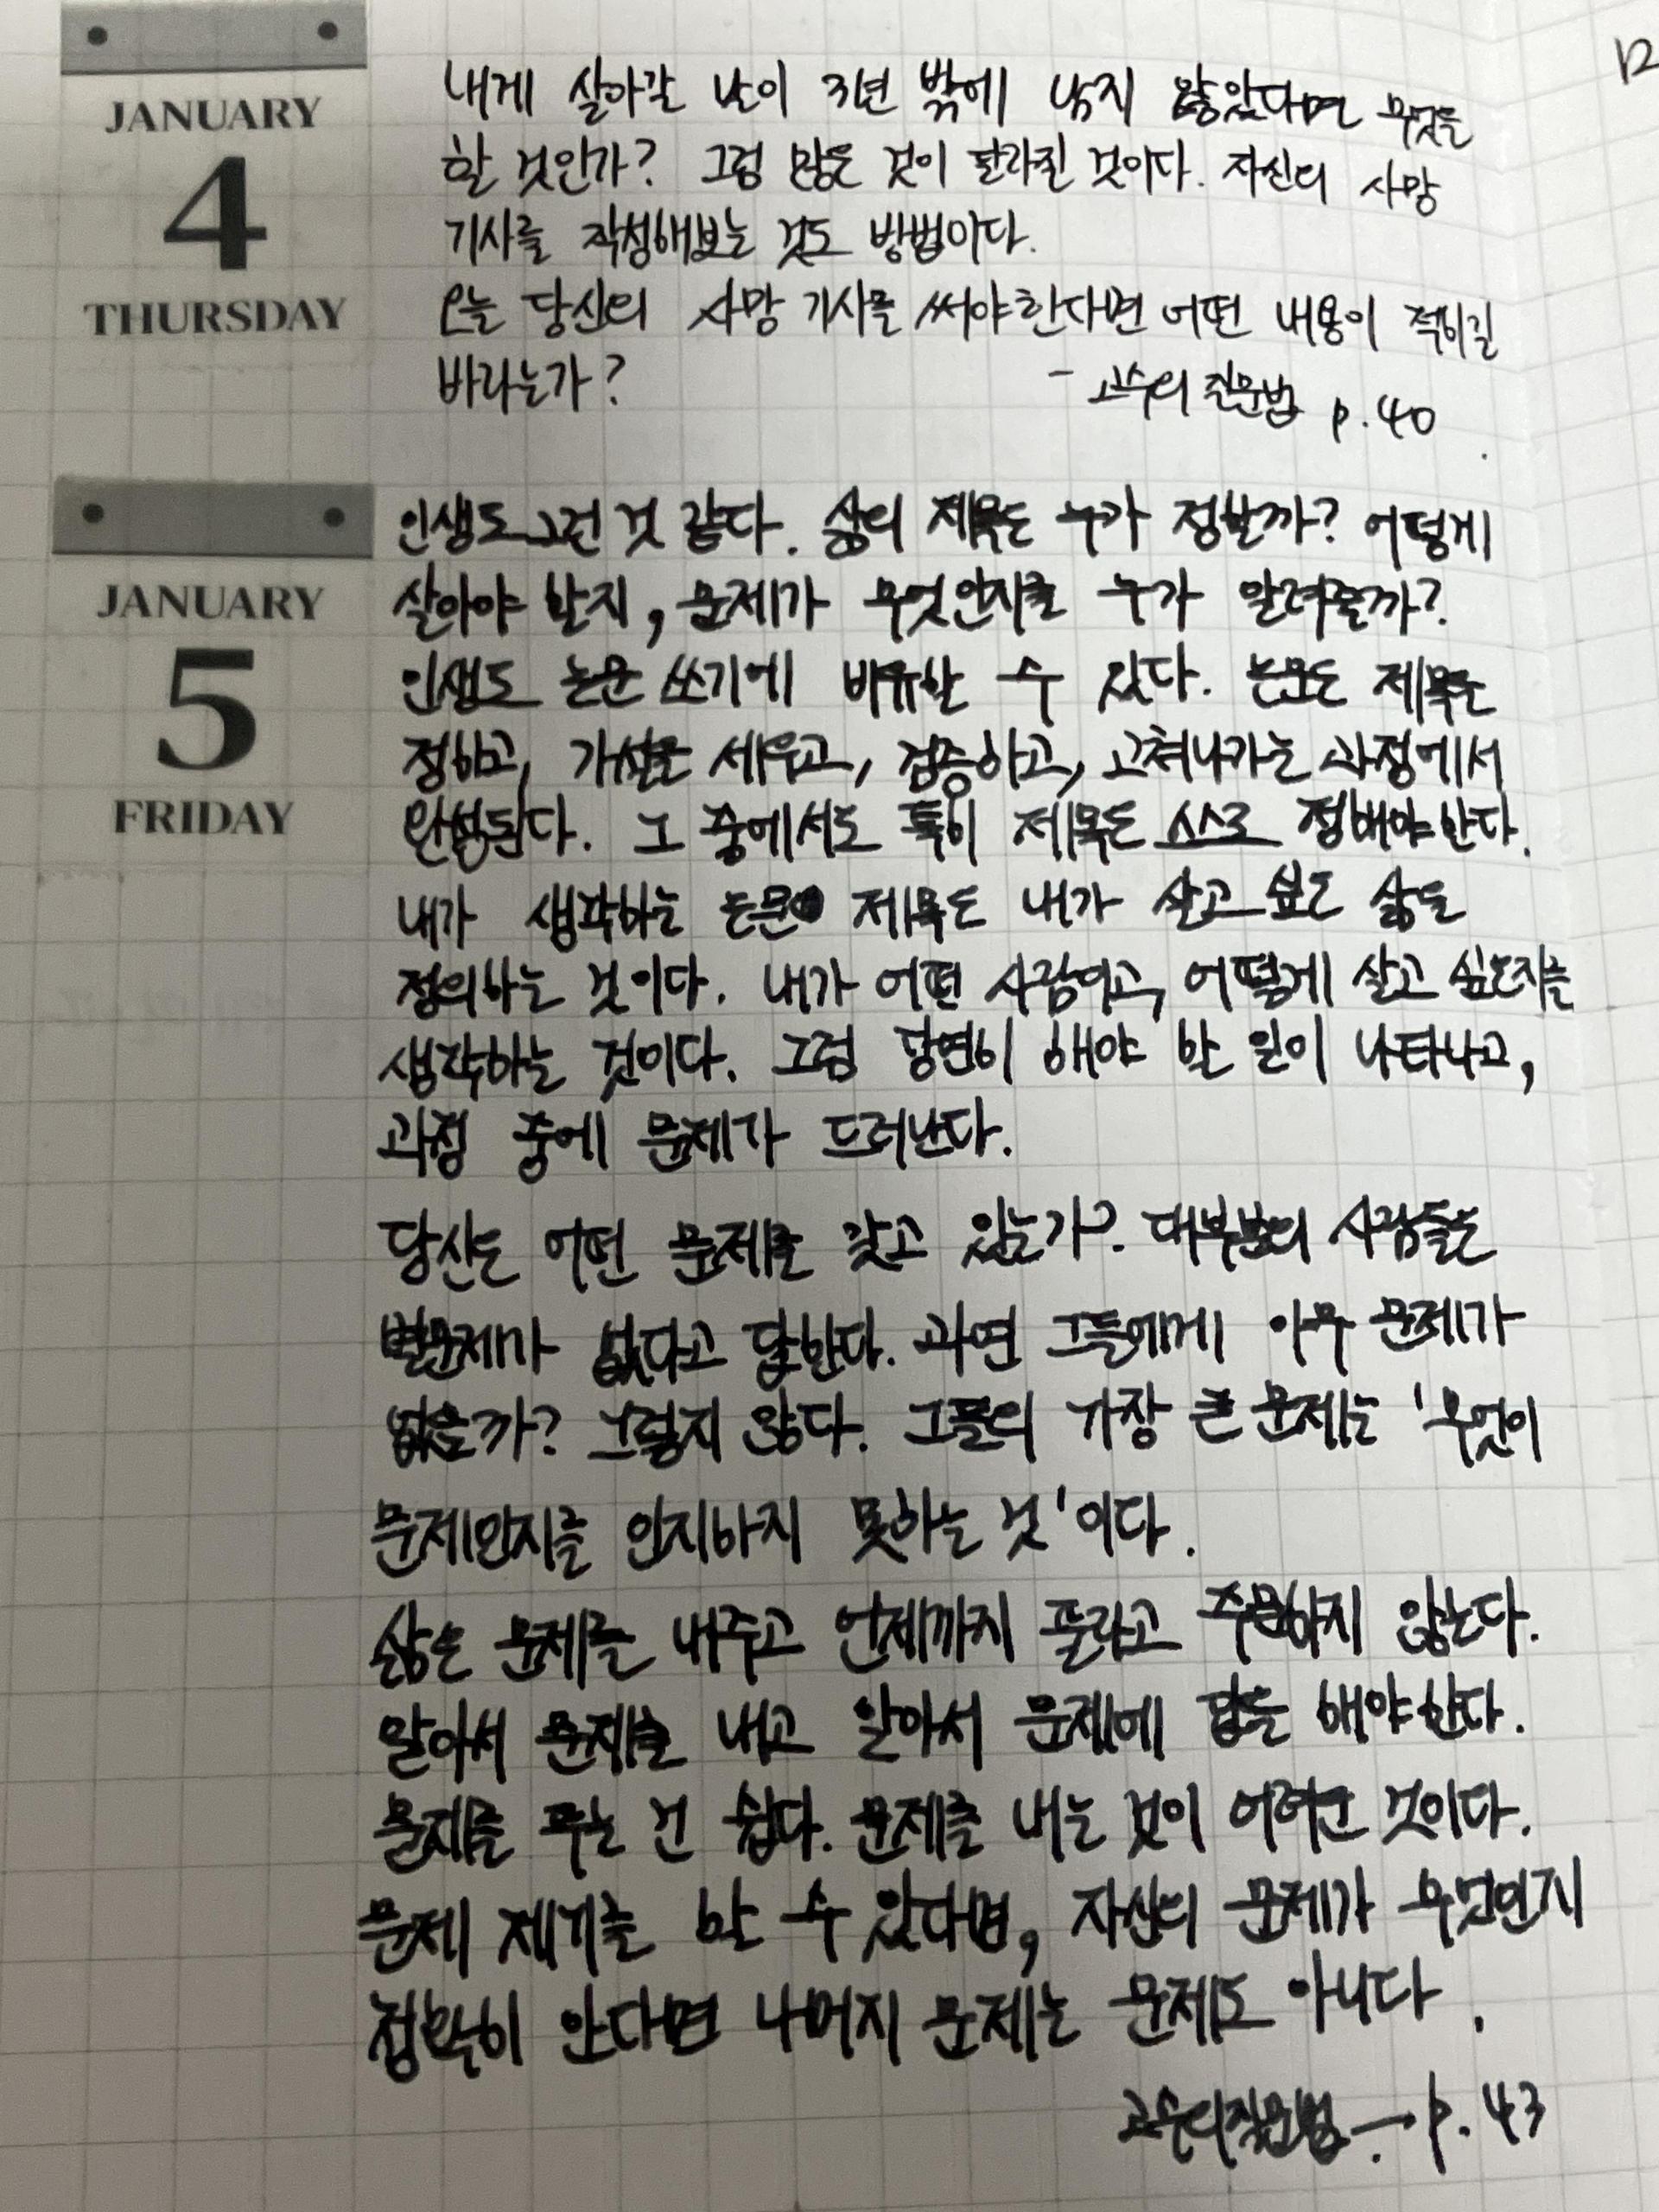 JANUARY
4
THURSDAY
내게 살아갈 날이 3년 밖에 남지 않았다면 무엇을
할 것인가? 그럼 많은 것이 달라질 것이다. 자신의 사망
기사를 작성해보는 것도 방법이다.
오늘 당신의 사망 기사를 써야한다면 어떤 내용이 적히길
바라는가?
- 고수의 질문법 p.40
JANUARY
5
FRIDAY
인생도 그런 것 같다. 삶의 제목은 누가 정할까? 어떻게
살아야 할지, 문제가 무엇인지를 누가 알려줄까?
인생도 논문 쓰기에 비유할 수 있다. 논문은 제목을
정하고, 가설을 세우고, 검증하고, 고쳐나가는 과정에서
완성된다. 그 중에서도 특히 제목은 스스로 정해야 한다.
내가 생각하는 논문 제목은 내가 살고 싶은 삶을
정의하는 것이다. 내가 어떤 사람이고, 어떻게 살고 싶은지를
생각하는 것이다. 그럼 당연히 해야 할 일이 나타나고,
과정 중에 문제가 드러난다.
당신은 어떤 문제를 갖고 있는가? 대부분의 사람들은
별문제가 없다고 답한다. 과연 그들에게 아무 문제가
없을까? 그렇지 않다. 그들의 가장 큰 문제는 '무엇이
문제인지를 인지하지 못하는 것'이다.
삶은 문제를 내주고 언제까지 풀라고 주문하지 않는다.
알아서 문제를 내고 알아서 문제에 답을 해야 한다.
문제를 푸는 건 쉽다. 문제를 내는 것이 어려운 것이다.
문제 제기를 할 수 있다면, 자신의 문제가 무엇인지
정확히 안다면 나머지 문제는 문제도 아니다.
고수의 질문법 → p.43
12